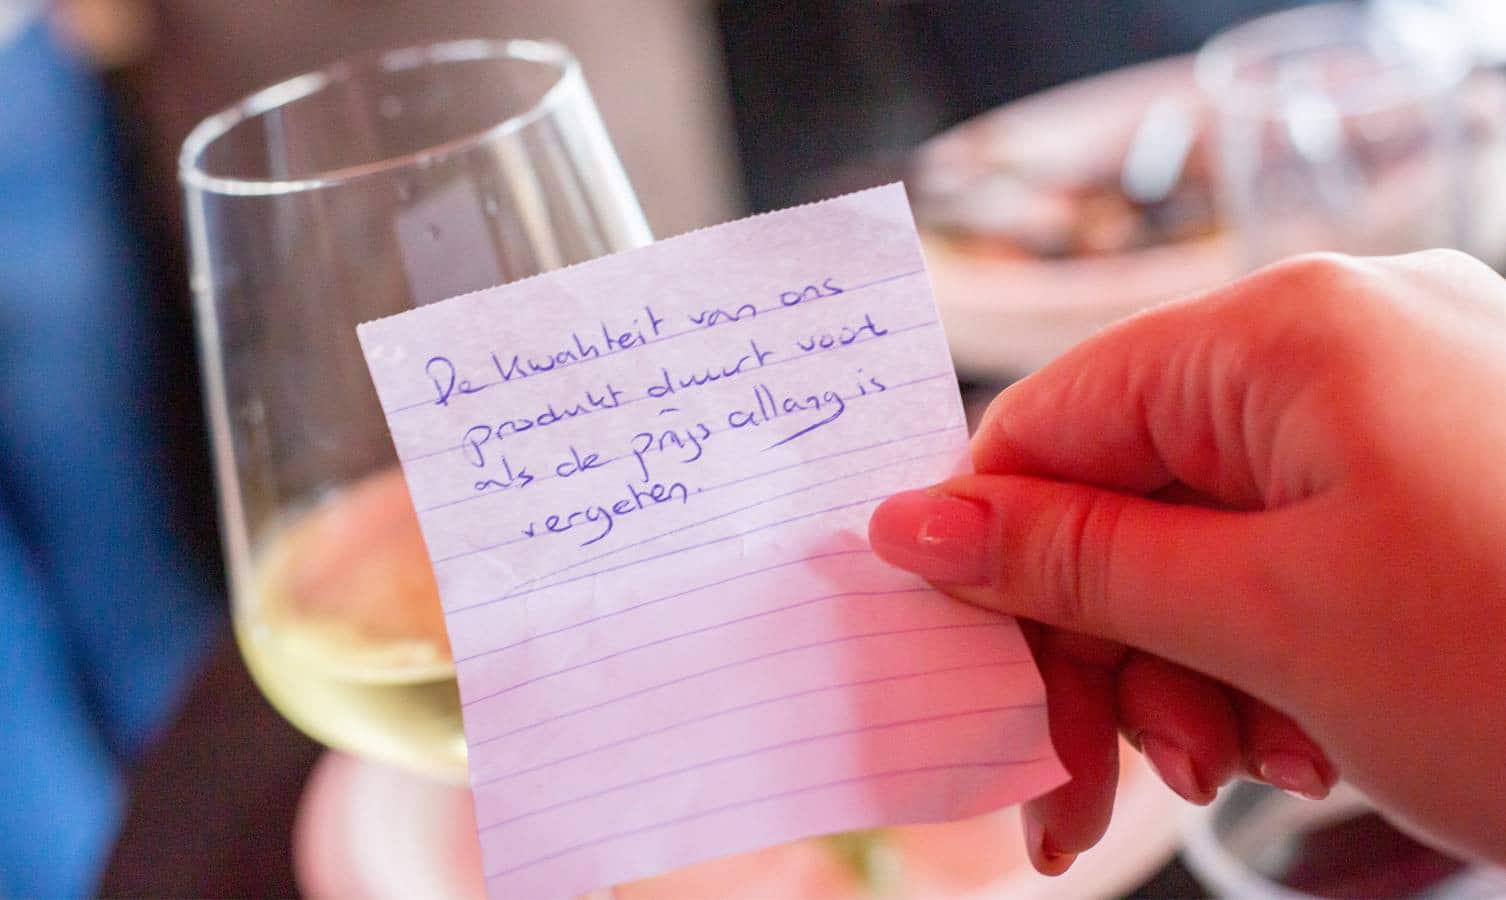 De kwaliteit van ons
produkt duurt voort
als de prijs allang is
vergeten.